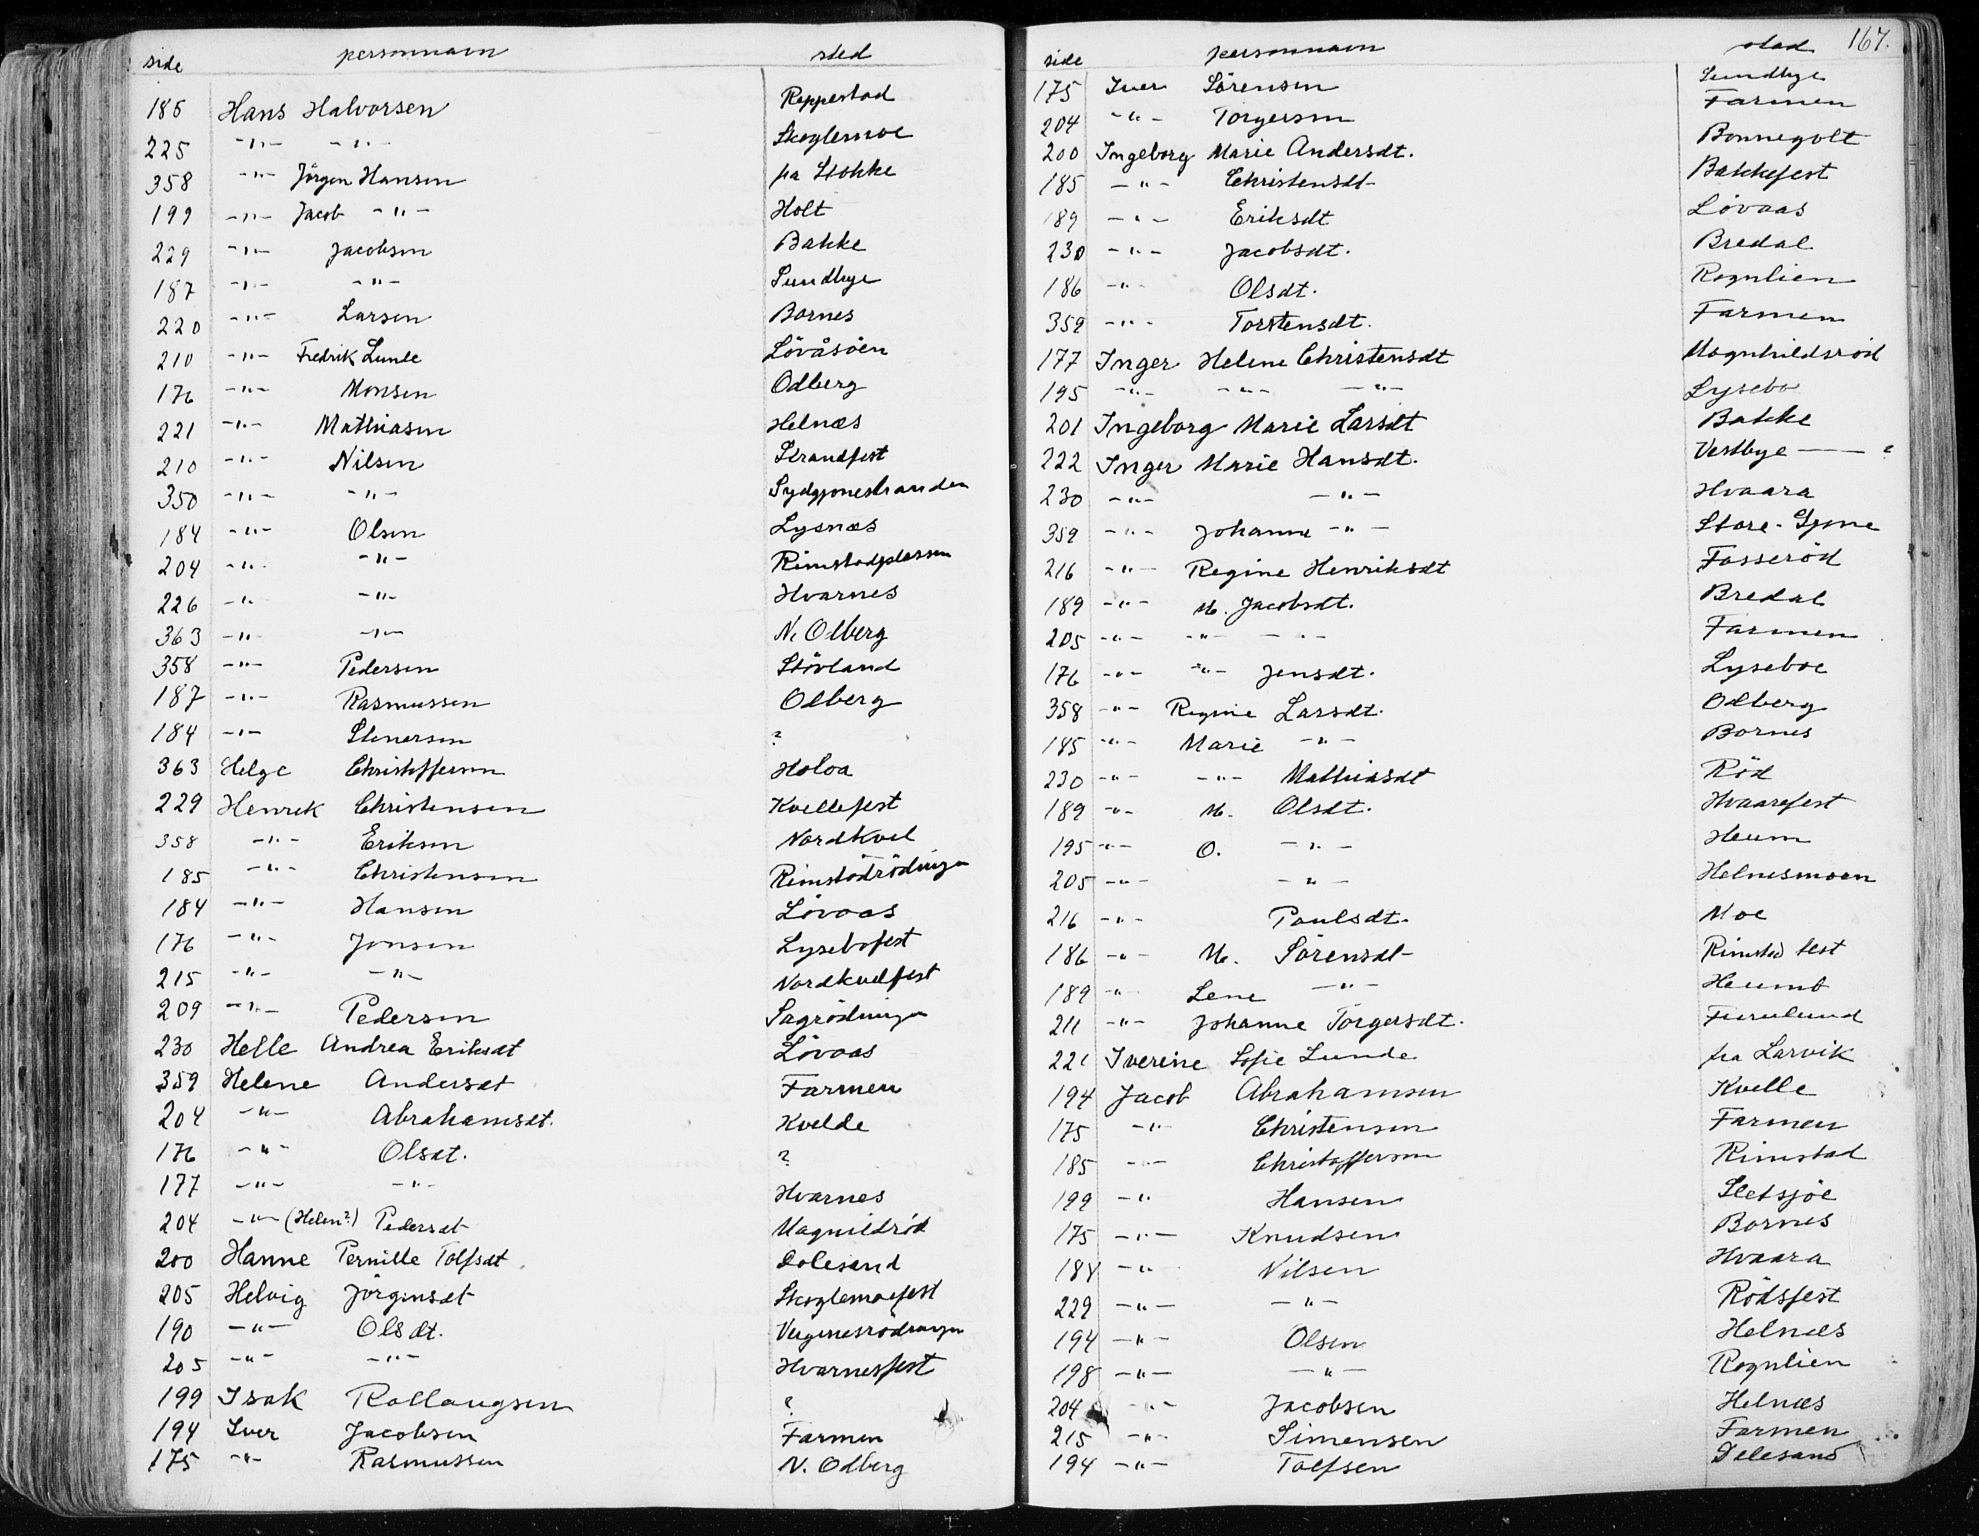 side personnavn sted
185 Hans Halvorsen Reppestad
225 -"- -"- Skoglemoe
358 -"- Jörgen Hansen fra Stokke
199 -"- Jacob -"- Holt
229 -"- Jacobsen Bakke
187 -"- -"- Sundbye
220 -"- Larsen Bornes
210 -"- Fredrik Lunde Lövåsöen
176 -"- Monsen Odberg
221 -"- Mathiasen Helnæs
210 -"- Nilsen Strandfest
350 -"- -"- Sydgjonestranden
184 -"- Olsen Lysnæs
204 -"- -"- Rimstadplassen
226 -"- -"- Hvarnes
363 -"- -"- N. Olberg
358 -"- Pedersen Stövland
187 -"- Rasmussen Olberg
184 -"- Stenersen ?
363 Helge Christoffersen Holva
229 Henrik Christensen Kvellefest
358 -"- Eriksen Nordkvel
185 -"- Christensen Rimstödrödningen
184 -"- Hansen Lövaas
176 -"- Jonsen Lysebofest
215 -"- -"- Nordkvelfest
209 -"- Pedersen Sagrödningen
230 Helle Andrea Eriksdt Lövaas
359 Helene Andersdt Farmen
204 -"- Abrahamsdt. Kvelde
176 -"- Olsdt. ?
177 -"- -"- Hvarnes
204 -"- (Helen?) Pedersdt Magnildröd
200 Hanne Pernille Tolfsdt Dolesand
205 Helvig Jörgensdt Skoglemoefest
190 -"- Olsdt.
205 -"- -"- Hvarnesfest
199 Isak Rollaugsen ?
194 Iver Jacobsen Farmen
175 -"- Rasmussen N. Odberg
side personnavn stad 167.
175 Iver Sörensen Sundbye
204 -"- Torgersen Farmen
200 Ingeborg Marie Andersdt. Bonnegolt
185 -"- Christensdt- Bakkefest
189 -"- Eriksdt Lövaas
230 -"- Jacobsdt. Bredal
186 -"- Olsdt. Rognlien
359 -"- Torstensdt. Farmen
177 Inger Helene Christensdt Magnhildsröd
195 -"- -"- -"- Lysebo
201 Ingeborg Marie Larsdt Bakke
222 Inger Marie Hansdt. Vestbye —
230 -"- -"- Hvaara
359 -"- Johanne -"- Store-Gjone
216 -"- Regine Henriksdt Fosseröd
189 -"- M. Jacobsdt. Bredal
205 -"- -"- -"- Farmen
176 -"- -"- Jensdt. Lyseboe
358 -"- Regine Larsdt. Odberg
185 -"- Marie -"- Bornes
230 -"- -"- Mathiasdt Röd
189 -"- M. Olsdt. Hvaarafest
195 -"- O. -"- Heum
205 -"- -"- Helnesmoen
216 -"- Poulsdt- Moe
186 -"- M. Sörensdt- Rimstad fest
189 -"- Lene -"- Heumb
211 -"- Johanne Torgersdt. Furulund
221 Iverine Sofie Lunde fra Larvik
194 Jacob Abrahamsen Kvelle
175 -"- Christensen Farmen
185 -"- Christoffersen Rimstad
199 -"- Hansen Sletsjöe
175 -"- Knudsen Bornes
184 -"- Nilsen Hvaara
229 -"- -"- Rödsfest
194 -"- Olsen Helnæs
198 -"- -"- Rognlien
204 -"- Jacobsen Helnæs
215 -"- Simensen Farmen
194 -"- Tolfsen Dolesand